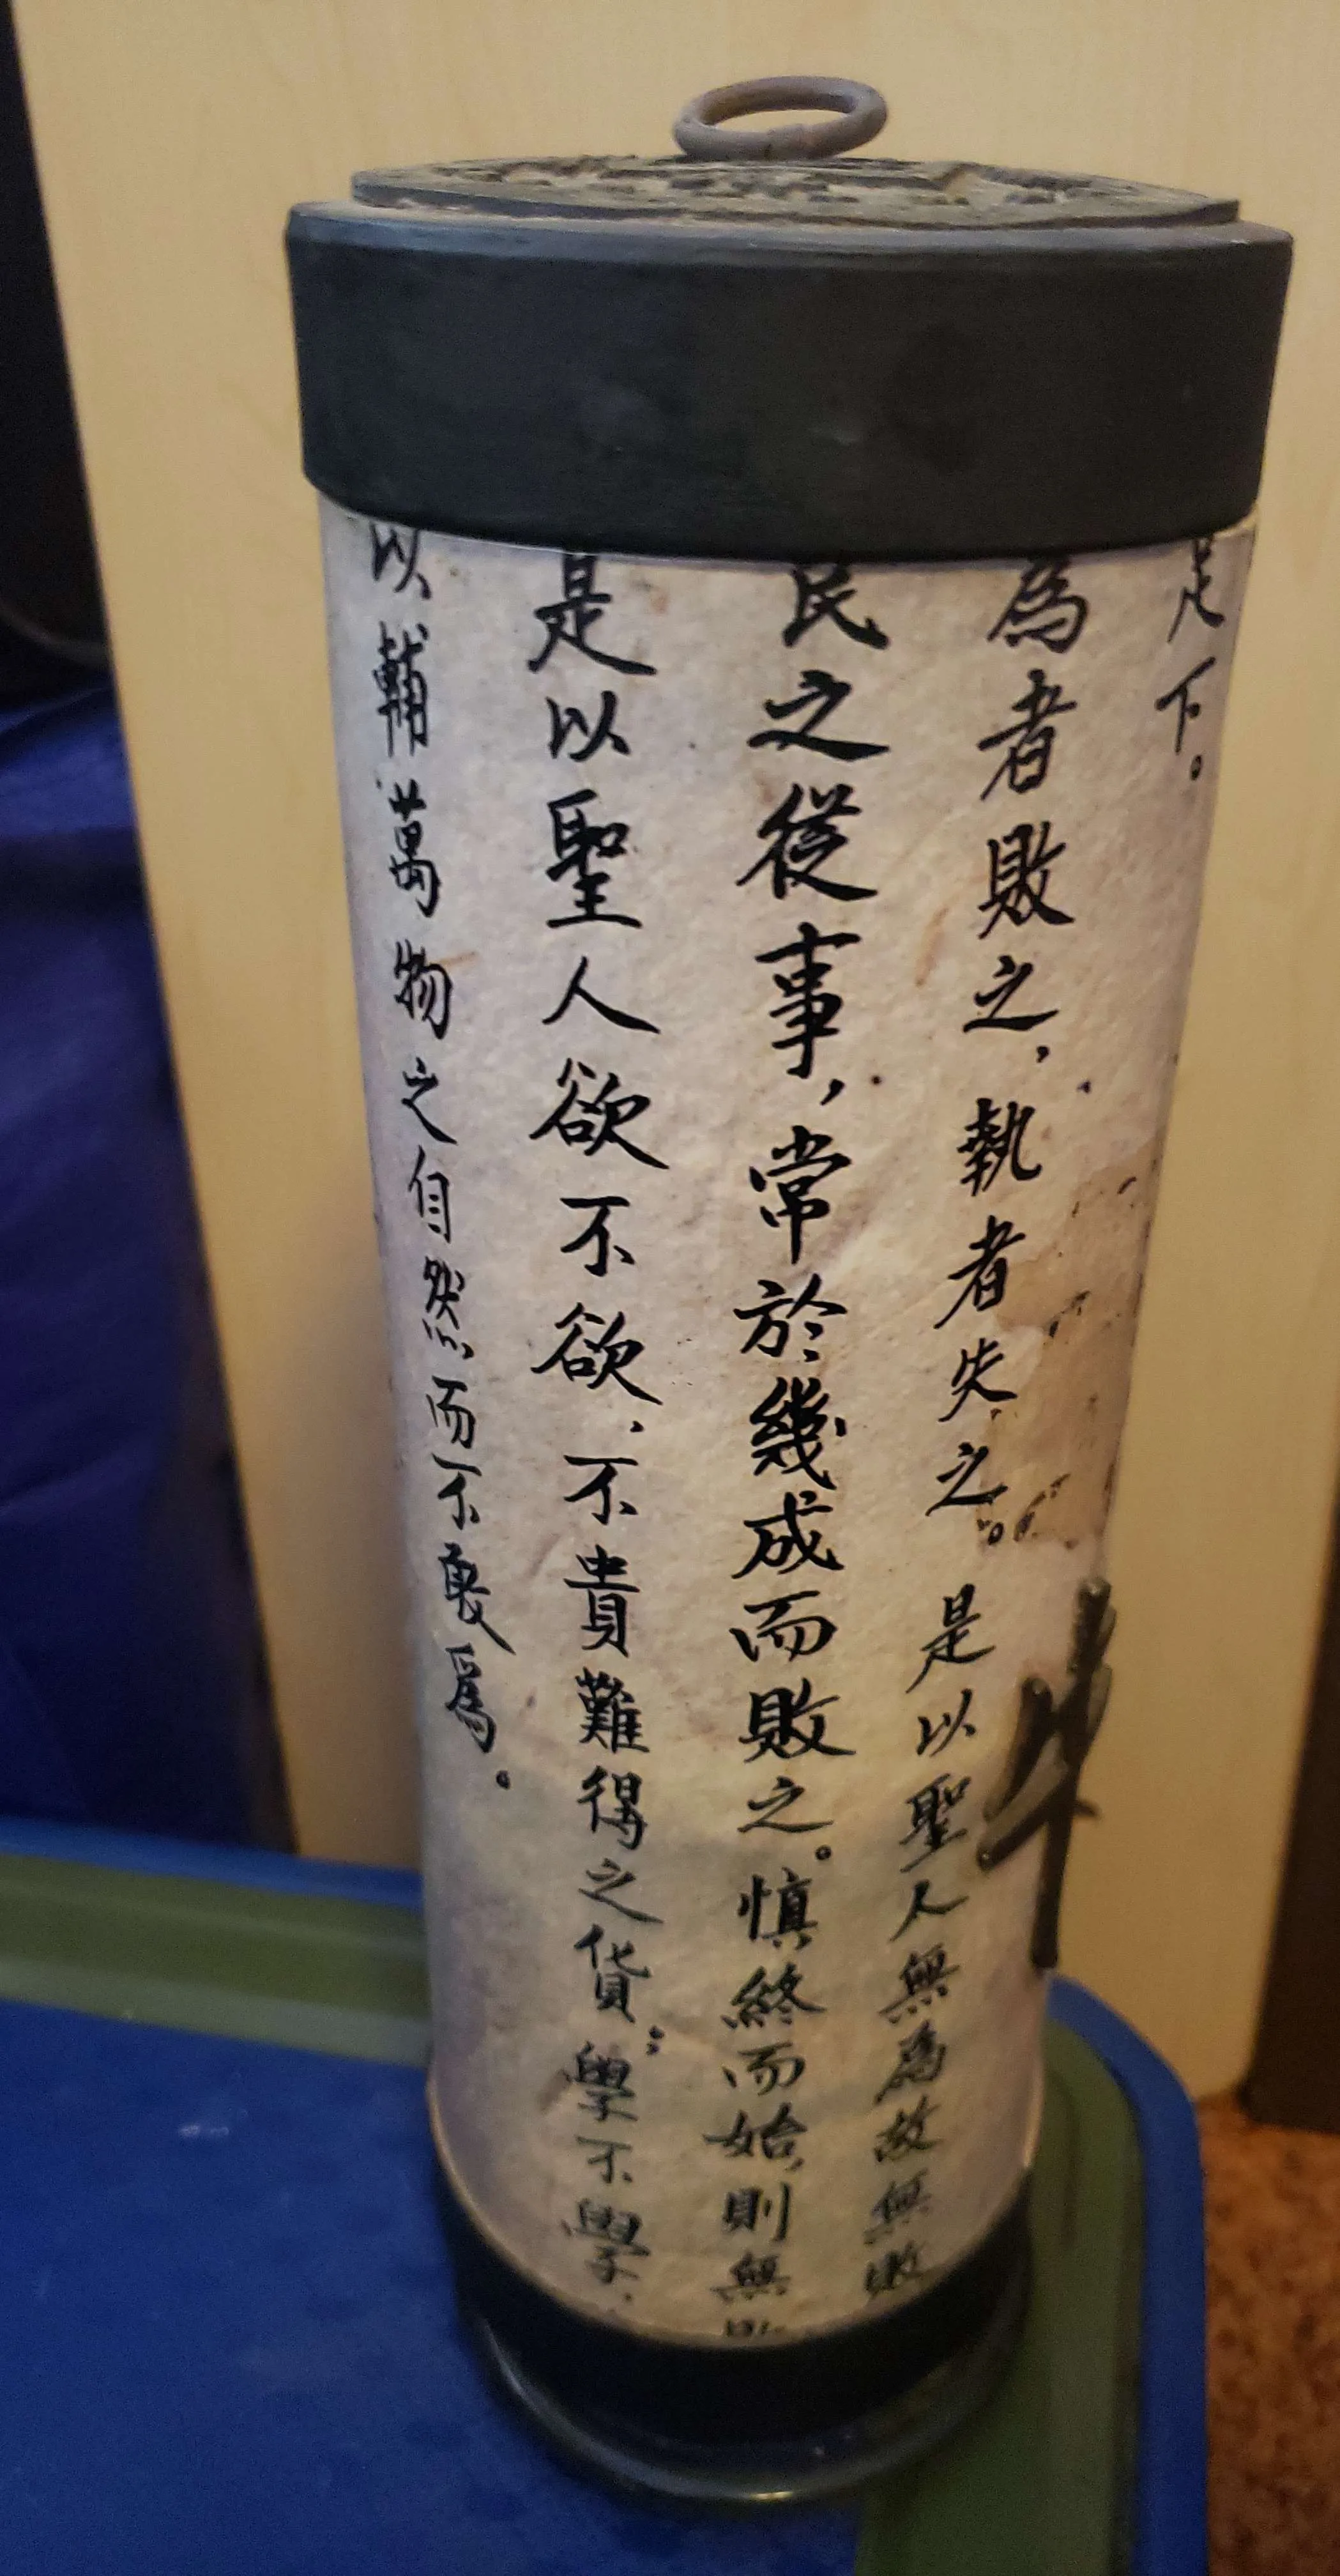 足下。
為者敗之，執者失之。是以聖人無為故無敗
民之從事，常於幾成而敗之。慎終而始，則無
是以聖人欲不欲，不貴難得之貨；學不學，
以輔萬物之自然而不敢為。